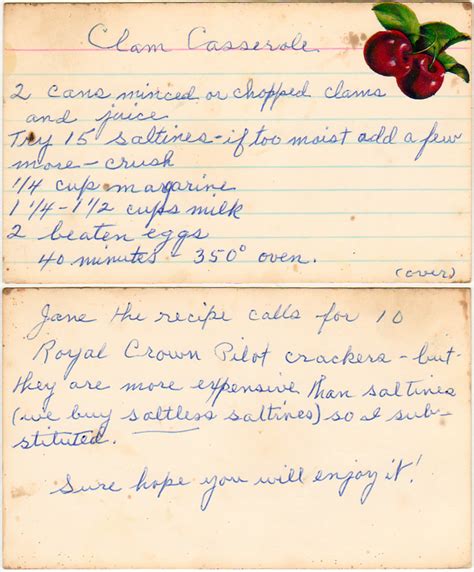 Clam Casserole
2 cans minced or chopped clams
and juice
Try 15 saltines-if too moist add a few
more-crush
1/4 cup margarine
1 1/4-1 1/2 cups milk
2 beaten eggs
40 minutes - 350° oven.
(over)
Jane the recipe calls for 10
Royal Crown Pilot crackers-but
they are more expensive than saltines
(we buy saltless saltines) so I sub-
stituted.
Sure hope you will enjoy it!